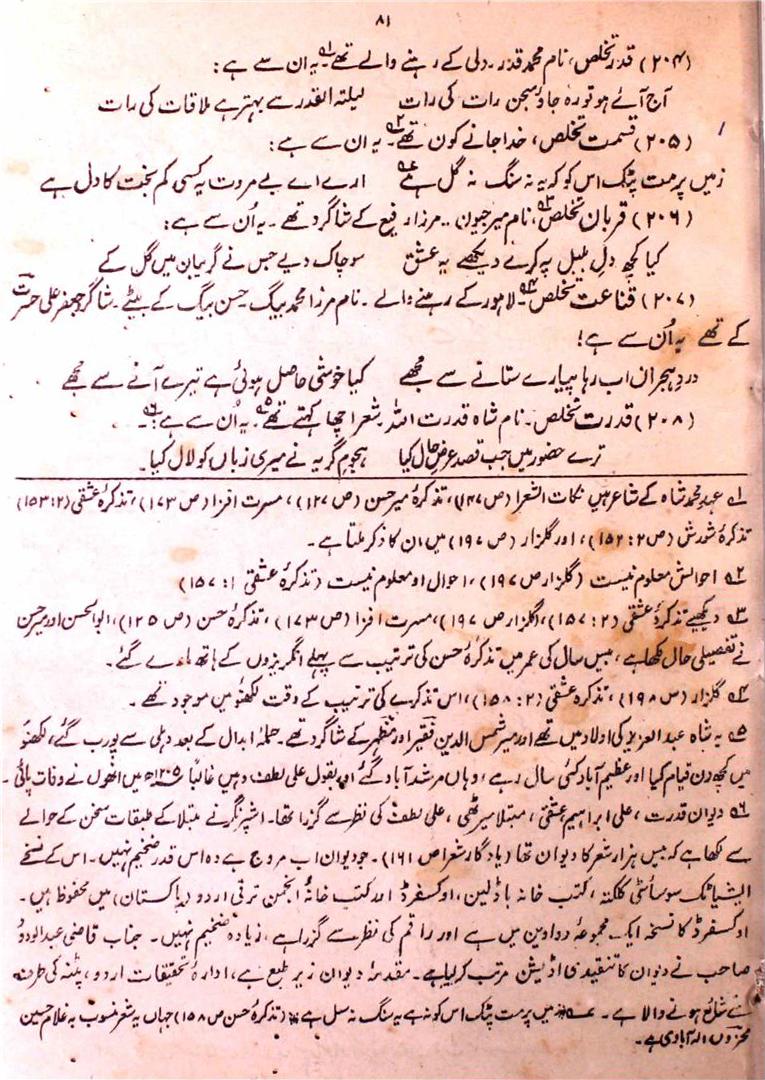 ۸۱
(۲۰۴) قدر تخلص، نام محمد قدر۔ دلی کے رہنے والے تھے۔ یہ ان سے ہے:
آج آئے ہو تو رہ جاؤ سجن رات کی رات     لیلتہ القدر سے بہتر ہے ملاقات کی رات
(۲۰۵) قسمت تخلص، خدا جانے کون تھے۔ یہ ان سے ہے:
زمیں پر مت پٹک اس کو کہ یہ نہ سنگ نہ گل ہے     ارے اے بے مروت یہ کسی کم بخت کا دل ہے
(۲۰۶) قربان تخلص، نام میر جیون .. مرزا رفیع کے شاگرد تھے۔ یہ اُن سے ہے:
کیا کچھ دلِ بلبل پہ کرے دیکھیے یہ عشق     سو چاک دیے جس نے گریبان میں گل کے
(۲۰۷) قناعت تخلص۔ لاہور کے رہنے والے۔ نام مرزا محمد بیگ۔ حسن بیگ کے بیٹے۔ شاگرد جعفر علی حسرت
کے تھے یہ اُن سے ہے:
دردِ ہجران اب رہا پیارے ستانے سے مجھے     کیا خوشی حاصل ہوئی ہے تیرے آنے سے مجھے
(۲۰۸) قدرت تخلص۔ نام شاہ قدرت اللہ۔ شعر اچھا کہتے تھے۔ یہ اُن سے ہے:
ترے حضور میں جب قصد عرضِ حال کیا     ہجومِ گریہ نے میری زباں کو لال کیا۔
۱ عہد محمد شاہ کے شاعر ہیں نکات الشعرا (ص ۱۴۷)، تذکرۂ میر حسن (ص ۱۲۷)، مسرت افزا (ص ۱۷۳)، تذکرۂ عشقی (۲: ۱۵۳)
تذکرۂ شورش (ص ۲: ۱۵۲)، اور گلزار (ص ۱۹۷) میں ان کا ذکر ملتا ہے۔
۲ احوالش معلوم نیست (گلزار ص ۱۹۷)، احوال او معلوم نیست (تذکرۂ عشقی ۱: ۱۵۷)
۳ دیکھیے تذکرۂ عشقی (۲: ۱۵۷)، گلزار ص ۱۹۷)، مسرت افزا (ص ۱۷۳)، تذکرۂ حسن (ص ۱۲۵)، ابوالحسن اور میر حسن
نے تفصیلی حال لکھا ہے، بیس سال کی عمر میں تذکرۂ حسن کی ترتیب سے پہلے انگریزوں کے ہاتھ مارے گئے۔
۴ گلزار (ص ۱۹۸)، تذکرۂ عشقی (۲: ۱۵۸)، اس تذکرے کی ترتیب کے وقت لکھنؤ میں موجود تھے۔
۵ یہ شاہ عبدالعزیز کی اولاد میں تھے اور میر شمس الدین فقیر اور مظہر کے شاگرد تھے۔ حملۂ ابدال کے بعد دہلی سے پورب گئے، لکھنؤ
میں کچھ دن قیام کیا اور عظیم آباد کئی سال رہے، وہاں مرشد آباد گئے اور بقول علی لطف وہیں غالباً ۱۲۰۵ھ میں انھوں نے وفات پائی۔
۶ دیوان قدرت، علی ابراہیم عشقی، مبتلا میرٹھی، علی لطف کی نظر سے گزرا تھا۔ اشپرنگر نے مبتلا کے طبقات سخن کے حوالے
سے لکھا ہے کہ بیس ہزار شعر کا دیوان تھا (یادگار شعرا ص ۱۶۱)۔ جو دیوان اب مروج ہے وہ اس قدر ضخیم نہیں۔ اس کے نسخے
ایشیاٹک سوسائٹی کلکتہ، کتب خانہ باڈلین، اوکسفرڈ اور کتب خانۂ انجمن ترقی اردو (پاکستان) میں محفوظ ہیں۔
اوکسفرڈ کا نسخہ ایک مجموعۂ دواوین میں ہے اور راقم کی نظر سے گزرا ہے، زیادہ ضخیم نہیں۔ جناب قاضی عبدالودود
صاحب نے دیوان کا تنقیدی اڈیشن مرتب کر لیا ہے۔ مقدمۂ دیوان زیر طبع ہے، ادارۂ تحقیقات اردو، پٹنہ کی طرف
سے شائع ہونے والا ہے۔ میں پر مت پٹک اس کو نہ ہے یہ سنگ نہ سل ہے (تذکرۂ حسن ص ۱۵۸) جہاں یہ شعر منسوب بہ غلام حسین
محزوں الہ آبادی ہے۔